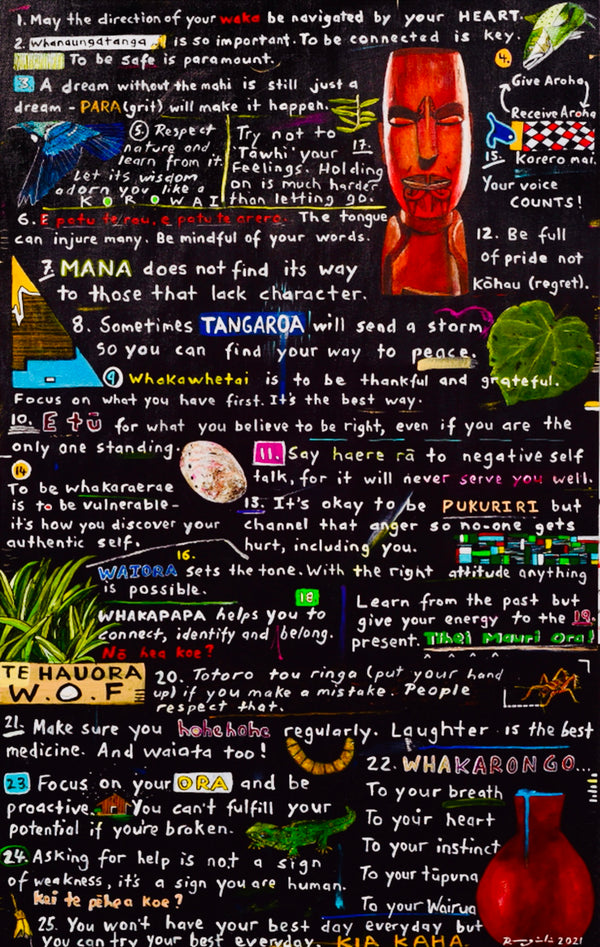 1. May the direction of your waka be navigated by your HEART.
2. Whanaungatanga is so important. To be connected is key.
To be safe is paramount.
3. A dream without the mahi is still just a
dream - PARA (grit) will make it happen.
4.
Give Aroha
Receive Aroha
5. Respect
nature and
learn from it.
Let its wisdom
adorn you like a
KOROWAI
Try not to
'Tāwhi' your 17.
Feelings. Holding
on is much harder
than letting go.
15. Kōrero mai.
Your voice
COUNTS!
6. E patu te rau, e patu te arero. The tongue
can injure many. Be mindful of your words.
12. Be full
of pride not
Kōhau (regret).
7. MANA does not find its way
to those that lack character.
8. Sometimes TANGAROA will send a storm
so you can find your way to peace.
9 Whakawhetai is to be thankful and grateful.
Focus on what you have first. It's the best way.
10. E tū for what you believe to be right, even if you are the
only one standing.
11. Say haere rā to negative self
talk, for it will never serve you well.
14
To be whakaraerae
is to be vulnerable-
it's how you discover your
authentic self.
13. It's okay to be PUKURIRI but
channel that anger so no-one gets
hurt, including you.
16.
WAIORA sets the tone. With the right attitude anything
is possible.
18
WHAKAPAPA helps you to
connect, identify and belong.
Nō hea koe?
Learn from the past but
give your energy to the 19.
present. Tihei Mauri Ora!
TE HAUORA
W.O.F
20. Totoro tou ringa (put your hand
up) if you make a mistake. People
respect that.
21. Make sure you hohehohe regularly. Laughter is the best
medicine. And waiata too!
22. WHAKARONGO...
To your breath
To your heart
To your instinct
To your tūpuna
To your Wairua
23. Focus on your ORA and be
proactive. You can't fulfill your
potential if you're broken.
24. Asking for help is not a sign
of weakness, it's a sign you are human.
Kei te pēhea koe?
25. You won't have your best day everyday but
you can try your best everyday. KIA KAHA.
2021